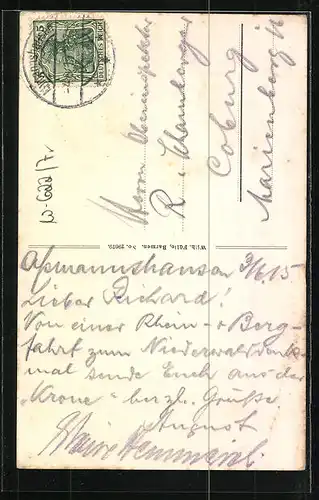 Herrn Oberinspektor
R. Schamberger
Coburg
Marienberg
W-622/7v
Wilh. Fülle, Barmen. No. 29679.
Aßmannshausen 3/6.15
Lieber Richard!
Von einer Rhein- + Berg-
fahrt zum Niederwalddenk-
mal sende Euch aus der
„Krone" herzl. Grüße.
August